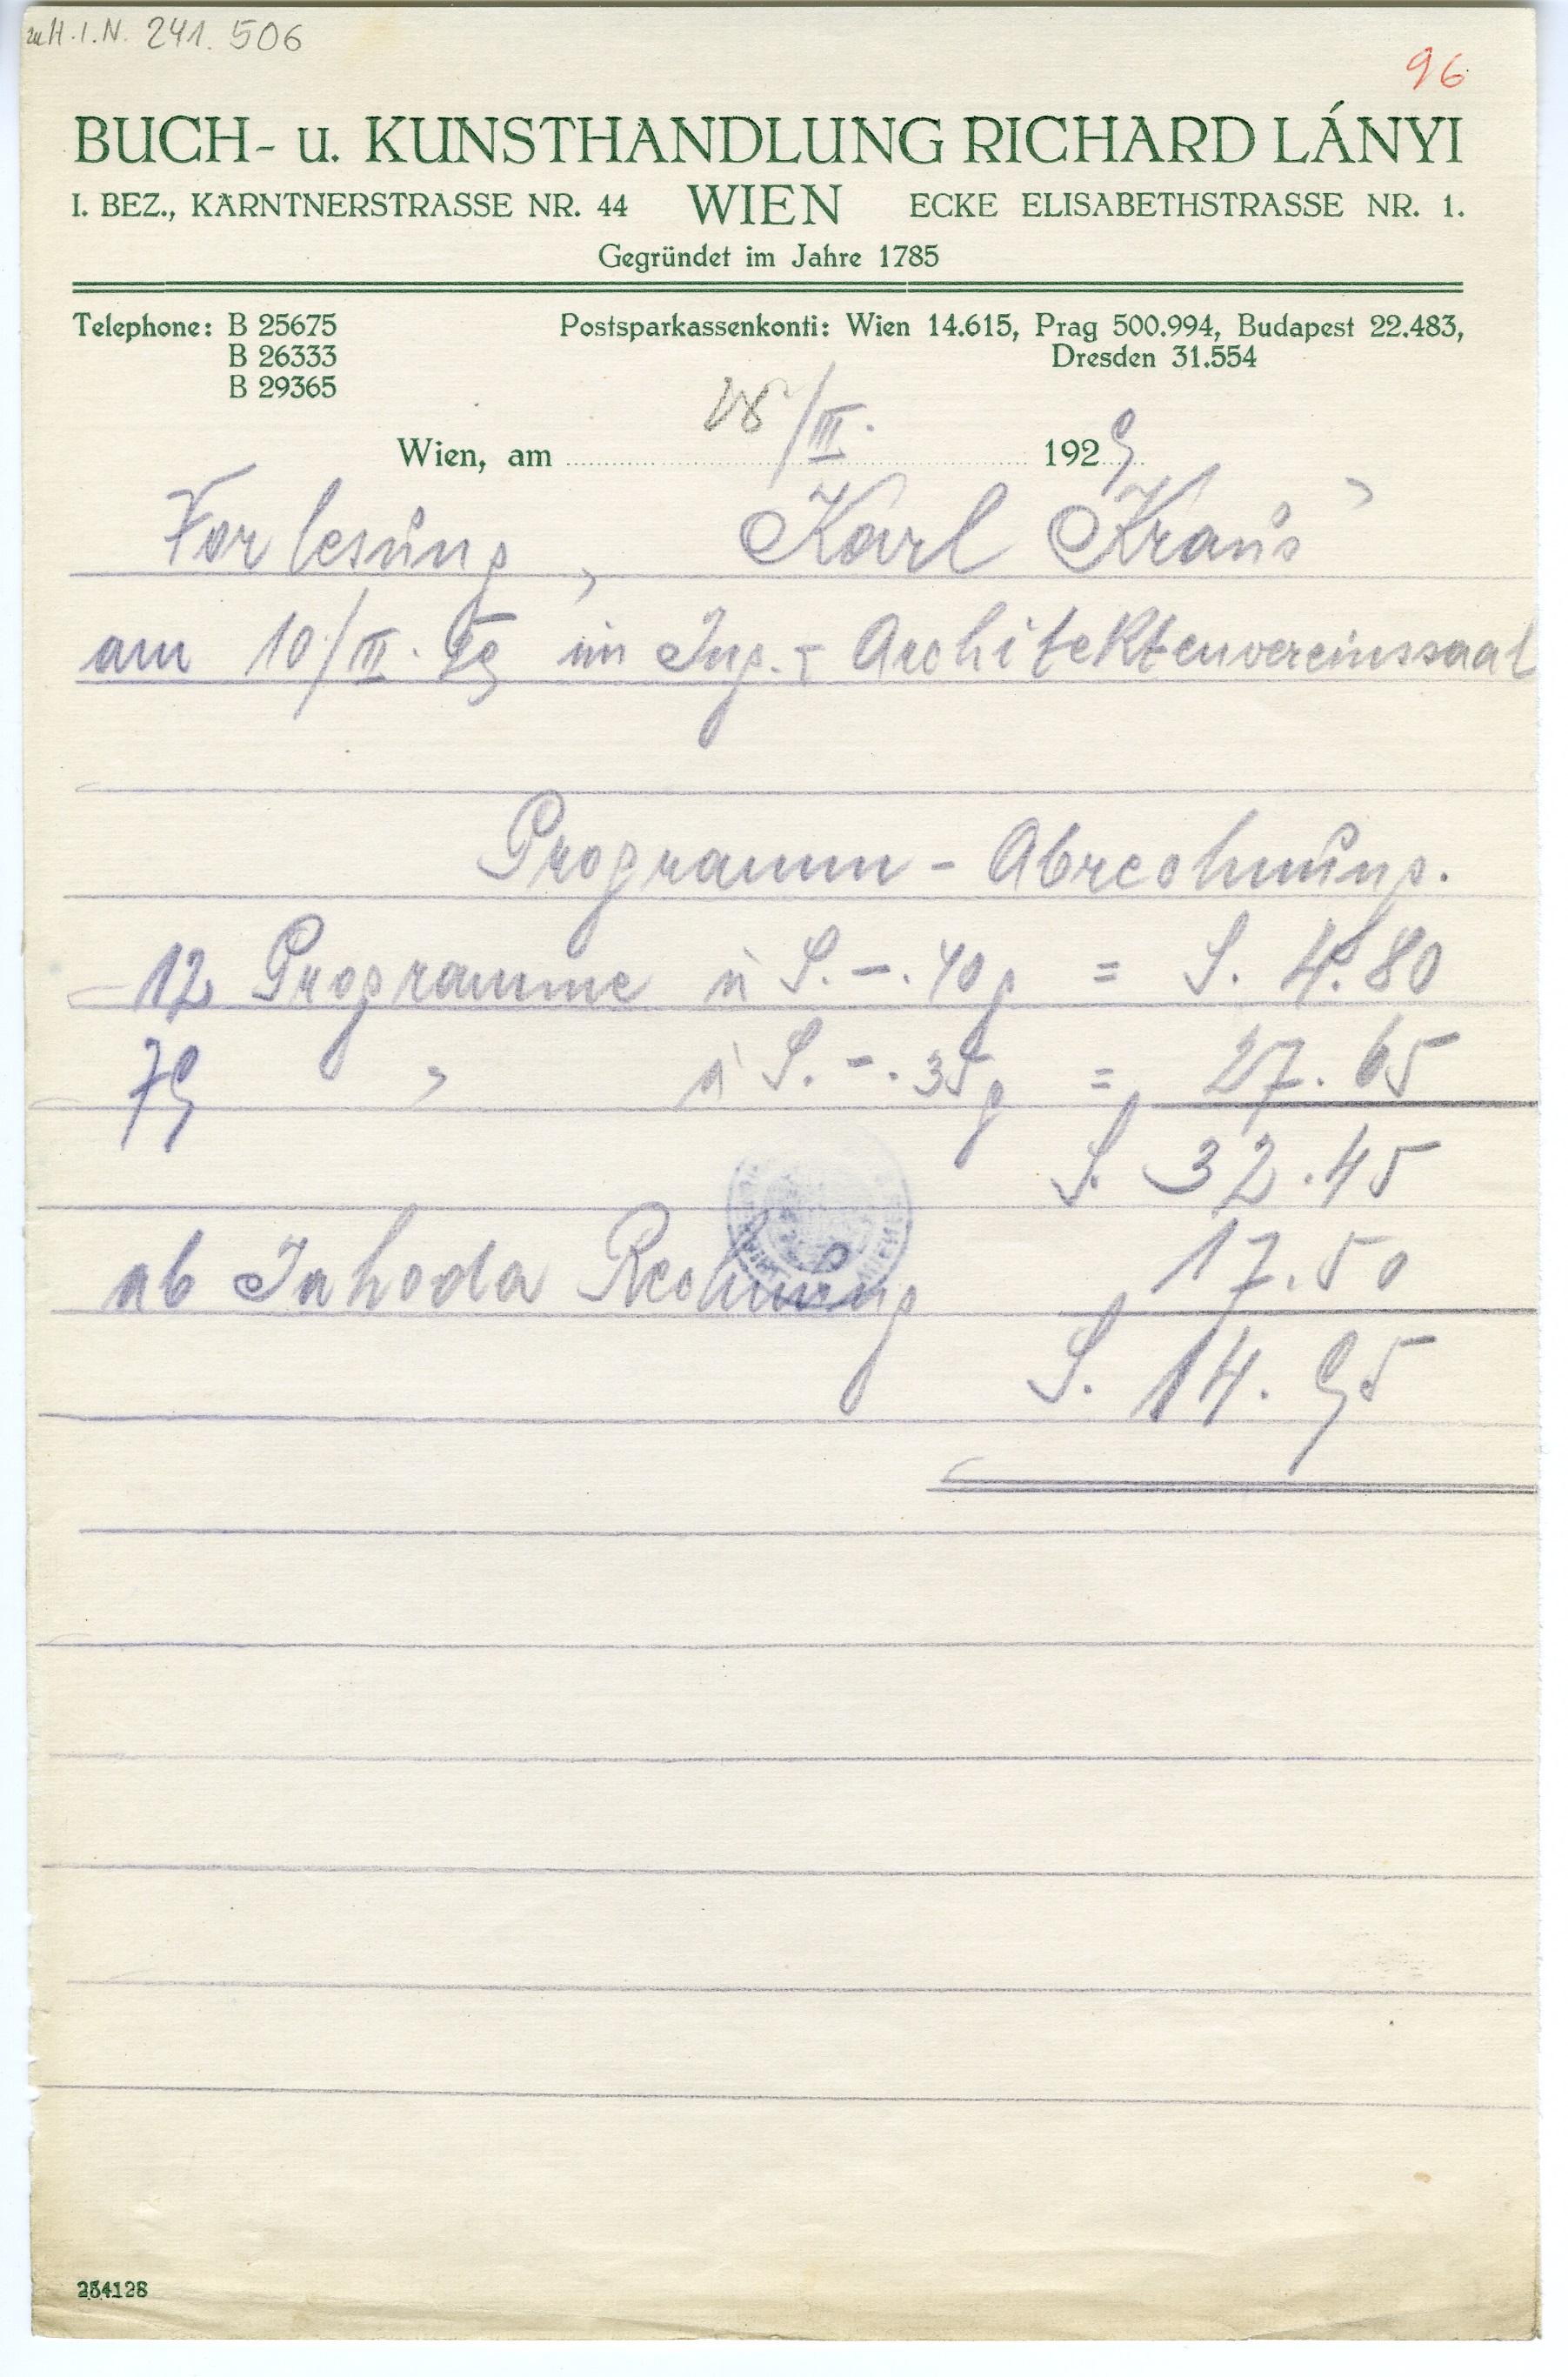 zu H.I.N. 241.506
96
BUCH- u. KUNSTHANDLUNG RICHARD LÁNYI
I. BEZ., KÄRNTNERSTRASSE NR. 44 WIEN ECKE ELISABETHSTRASSE NR. 1.
Gegründet im Jahre 1785
Telephone: B 25675
B 26333
B 29365
Postsparkassenkonti: Wien 14.615, Prag 500.994, Budapest 22.483,
Dresden 31.554
Wien, am 28/III. 1929
Vorlesung „Karl Kraus"
am 10/II. 29 im Ing. - Architektenvereinssaal
Programm - Abrechnung.
12 Programme à S. -.40g = S. 4.80
79 " à S. -.35g = 27.65
S. 32.45
ab Jahoda Rechnung 17.50
S. 14.95
254128